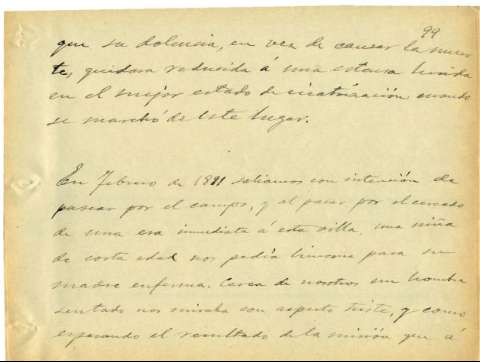 99
que su dolencia, en vez de causar la muer
te, quedara reducida á una escasa herida
en el mejor estado de cicatrización cuando
se marchó de este lugar.
En Febrero de 1891 saliamos con intención de
pasear por el campo, y al pasar por el cercado
de una era inmediata á esta villa, una niña
de corta edad nos pedia limosna para su
madre enferma. Cerca de nosotros un hombre
sentado nos miraba con aspecto triste, y como
esperando el resultado de la misión que á